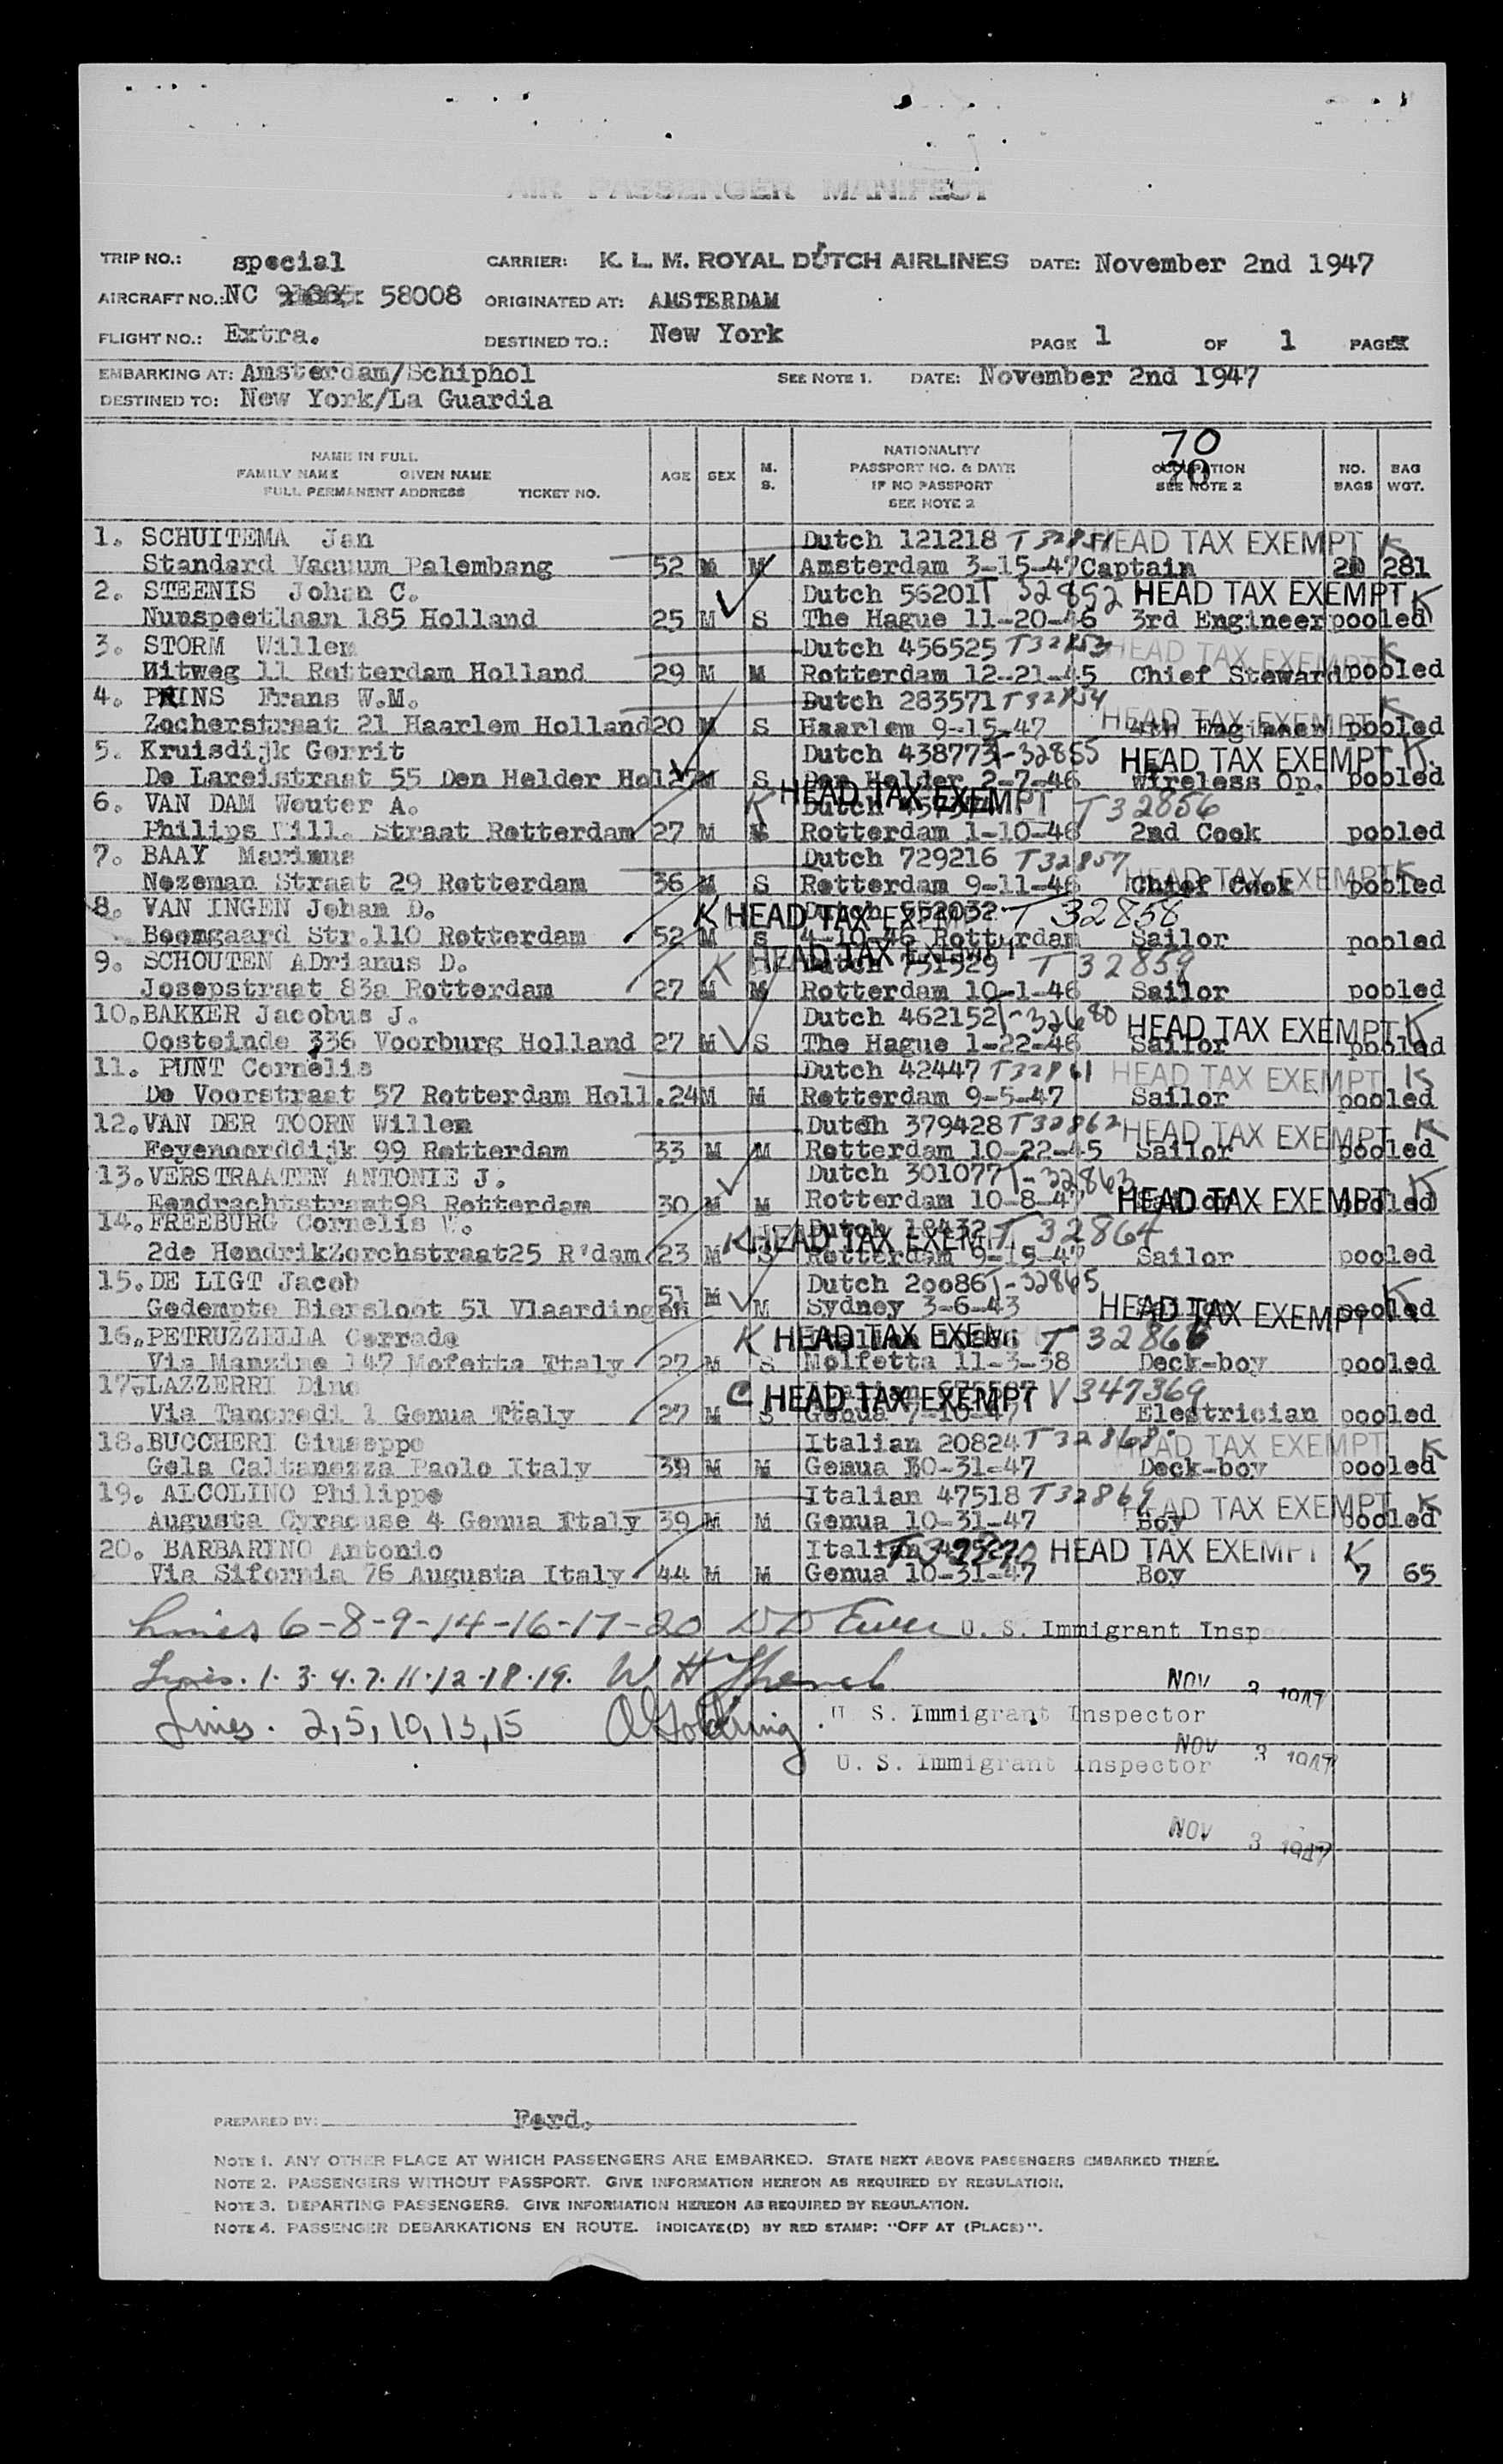 AIR PASSENGER MANIFEST
TRIP NO.: special CARRIER: K. L. M. ROYAL DUTCH AIRLINES DATE: November 2nd 1947
AIRCRAFT NO.: NC 58008 ORIGINATED AT: AMSTERDAM
FLIGHT NO.: Extra. DESTINED TO.: New York PAGE 1 OF 1 PAGES
EMBARKING AT: Amsterdam/Schiphol SEE NOTE 1. DATE: November 2nd 1947
DESTINED TO: New York/La Guardia
70
NAME IN FULL
FAMILY NAME GIVEN NAME
FULL PERMANENT ADDRESS TICKET NO.
AGE SEX M. S.
NATIONALITY
PASSPORT NO. & DATE
IF NO PASSPORT
SEE NOTE 2
70
OCCUPATION
SEE NOTE 2
NO. BAGS
BAG WGT.
1. SCHUITEMA Jan Dutch 121218 T 32851 HEAD TAX EXEMPT K
Standard Vacuum Palembang 52 M M Amsterdam 3-15-47 Captain 20 281
2. STEENIS Johan C. Dutch 56201 T 32852 HEAD TAX EXEMPT K
Nunspeetlaan 185 Holland 25 M S The Hague 11-20-46 3rd Engineer pooled
3. STORM Willem Dutch 456525 T32853 HEAD TAX EXEMPT K
Witweg 11 Rotterdam Holland 29 M M Rotterdam 12-21-45 Chief Steward pooled
4. PRINS Frans W.M. Dutch 283571 T32854 HEAD TAX EXEMPT K
Zocherstraat 21 Haarlem Holland 20 M S Haarlem 9-15-47 4th Engineer pooled
5. Kruisdijk Gerrit Dutch 438773 T-32855 HEAD TAX EXEMPT K
De Lareistraat 55 Den Helder Hol. 27 M S Den Helder 2-7-46 Wireless Op. pooled
6. VAN DAM Wouter A. K HEAD TAX EXEMPT Dutch T 32856
Philips Will. Straat Rotterdam 27 M Rotterdam 1-10-46 2nd Cook pooled
7. BAAY Marinus Dutch 729216 T32857 HEAD TAX EXEMPT K
Nozeman Straat 29 Rotterdam 36 M S Rotterdam 9-11-46 Chief Cook pooled
8. VAN INGEN Johan D. K HEAD TAX EXEMPT Dutch 552032 T 32858
Boomgaard Str.110 Rotterdam 52 M S 4-10-46 Rotterdam Sailor pooled
9. SCHOUTEN ADrianus D. K HEAD TAX EXEMPT Dutch 751529 T 32859
Josepstraat 83a Rotterdam 27 M M Rotterdam 10-1-46 Sailor pooled
10. BAKKER Jacobus J. Dutch 462152 HEAD TAX EXEMPT K
Oosteinde 336 Voorburg Holland 27 M S The Hague 1-22-46 Sailor pooled
11. PUNT Cornelis Dutch 42447 T32861 HEAD TAX EXEMPT K
De Voorstraat 57 Rotterdam Holl. 24 M M Rotterdam 9-5-47 Sailor pooled
12. VAN DER TOORN Willem Dutch 379428 T32862 HEAD TAX EXEMPT K
Feyenoorddijk 99 Rotterdam 33 M M Rotterdam 10-22-45 Sailor pooled
13. VERSTRAATEN ANTONIE J. Dutch 301077 T-32863 K
Eendrachtstraat98 Rotterdam 30 M M Rotterdam 10-8-47 HEAD TAX EXEMPT pooled
14. FREEBURG Cornelis W. K HEAD TAX EXEMPT Dutch 18432 T 32864
2de HendrikZorchstraat25 R'dam 23 M S Rotterdam 9-15-47 Sailor pooled
15. DE LIGT Jacob Dutch 20086 T-32865 K
Gedempte Biersloot 51 Vlaardingen 51 M M Sydney 3-6-43 HEAD TAX EXEMPT pooled
16. PETRUZZELLA Corrado K HEAD TAX EXEM T 32866
Via Manzine 147 Mofetta Italy 27 M S Molfetta 11-3-38 Deck-boy pooled
17. LAZZERRI Dino C HEAD TAX EXEMPT V347369
Via Tancredi 1 Genua Italy 27 M S Genua 7-10-47 Electrician pooled
18. BUCCHERI Giuseppe Italian 20824 T32868 HEAD TAX EXEMPT K
Gela Caltanezza Paolo Italy 39 M M Genua 10-31-47 Deck-boy pooled
19. ALCOLINO Philippo Italian 47518 T32869 HEAD TAX EXEMPT K
Augusta Cyracuse 4 Genua Italy 39 M M Genua 10-31-47 Boy pooled
20. BARBARINO Antonio Italian HEAD TAX EXEMPT K
Via Sifornia 76 Augusta Italy 44 M M Genua 10-31-47 Boy 7 65
Lines 6-8-9-14-16-17-20 U. S. Immigrant Insp
Lines. 1. 3. 4. 7. 11. 12. 18. 19. W H French NOV 3 1947
U. S. Immigrant Inspector
Lines. 2, 5, 10, 13, 15 A Golding NOV 3 1947
U. S. Immigrant Inspector
NOV 3 1947
PREPARED BY: Ferd.
NOTE 1. ANY OTHER PLACE AT WHICH PASSENGERS ARE EMBARKED. STATE NEXT ABOVE PASSENGERS EMBARKED THERE.
NOTE 2. PASSENGERS WITHOUT PASSPORT. GIVE INFORMATION HEREON AS REQUIRED BY REGULATION.
NOTE 3. DEPARTING PASSENGERS. GIVE INFORMATION HEREON AS REQUIRED BY REGULATION.
NOTE 4. PASSENGER DEBARKATIONS EN ROUTE. INDICATE(D) BY RED STAMP: "OFF AT (PLACE)".